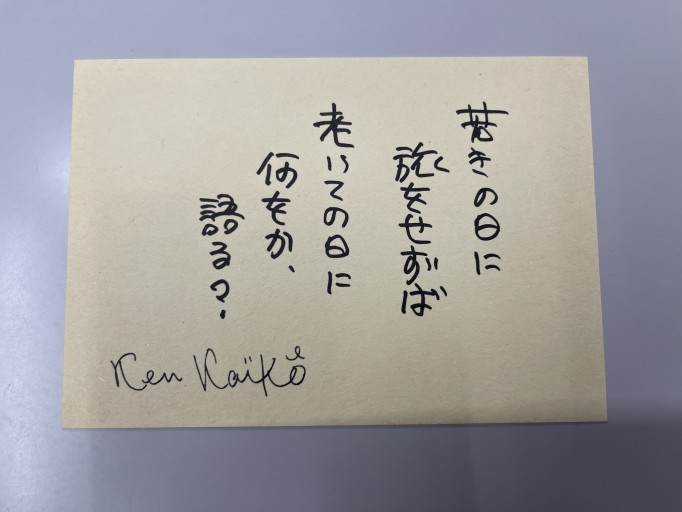 若きの日に
旅をせずば
老いての日に
何をか、
語る？
Ken Kaïkô